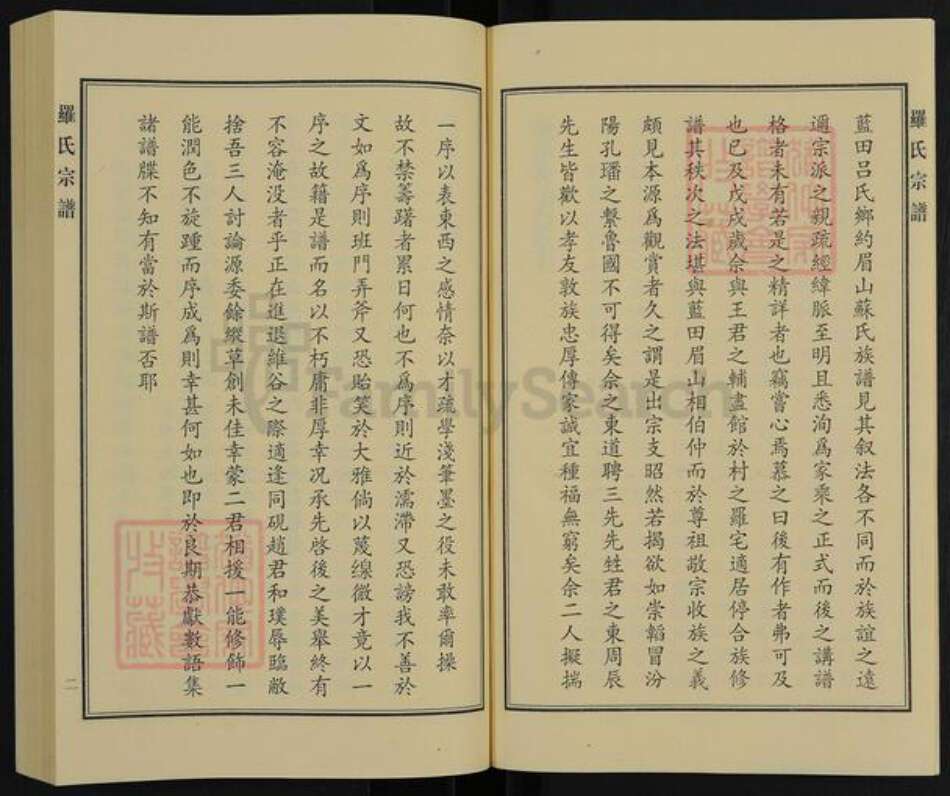 羅氏宗譜
藍田呂氏鄉約眉山蘇氏族譜見其叙法各不同而於族誼之遠
邇宗派之親疏經緯脈至明且悉洵爲家乘之正式而後之講譜
格者未有若是之精詳者也竊嘗心焉慕之曰後有作者弗可及
也已及戊戌歲余與王君之輔盡館於村之羅宅適居停合族修
譜其秩次之法堪與藍田眉山相伯仲而於尊祖敬宗收族之義
頗見本源爲觀賞者久之謂是出宗支昭然若揭欲如崇韜冒汾
陽孔璠之繫魯國不可得矣余之東道聘三先先甡君之東周辰
先生皆歡以孝友敦族忠厚傳家誠宜種福無窮矣余二人擬揣
一序以表東西之感情奈以才疏學淺筆墨之役未敢率爾操
故不禁籌躇者累日何也不爲序則近於濡滯又恐謗我不善於
文如爲序則班門弄斧又恐貽笑於大雅倘以蔑線微才竟以一
序之故籍是譜而名以不朽庸非厚幸况承先啓後之美舉終有
不容淹没者乎正在進退維谷之際適逢同硯趙君和璞辱臨敝
捨吾三人討論源委餘縱草創未佳幸蒙二君相援一能修飾一
能潤色不旋踵而序成爲則幸甚何如也即於良期恭獻數語集
諸譜牒不知有當於斯譜否耶
羅氏宗譜
二
FamilySearch